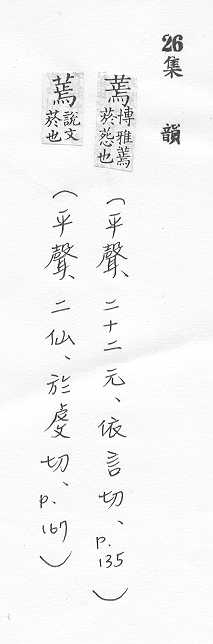 26集韻
蔫博雅蔫菸葱也(平聲、二十二元、依言切、p.135)
蔫說文菸也(平聲、二仙、於虔切、p.167)